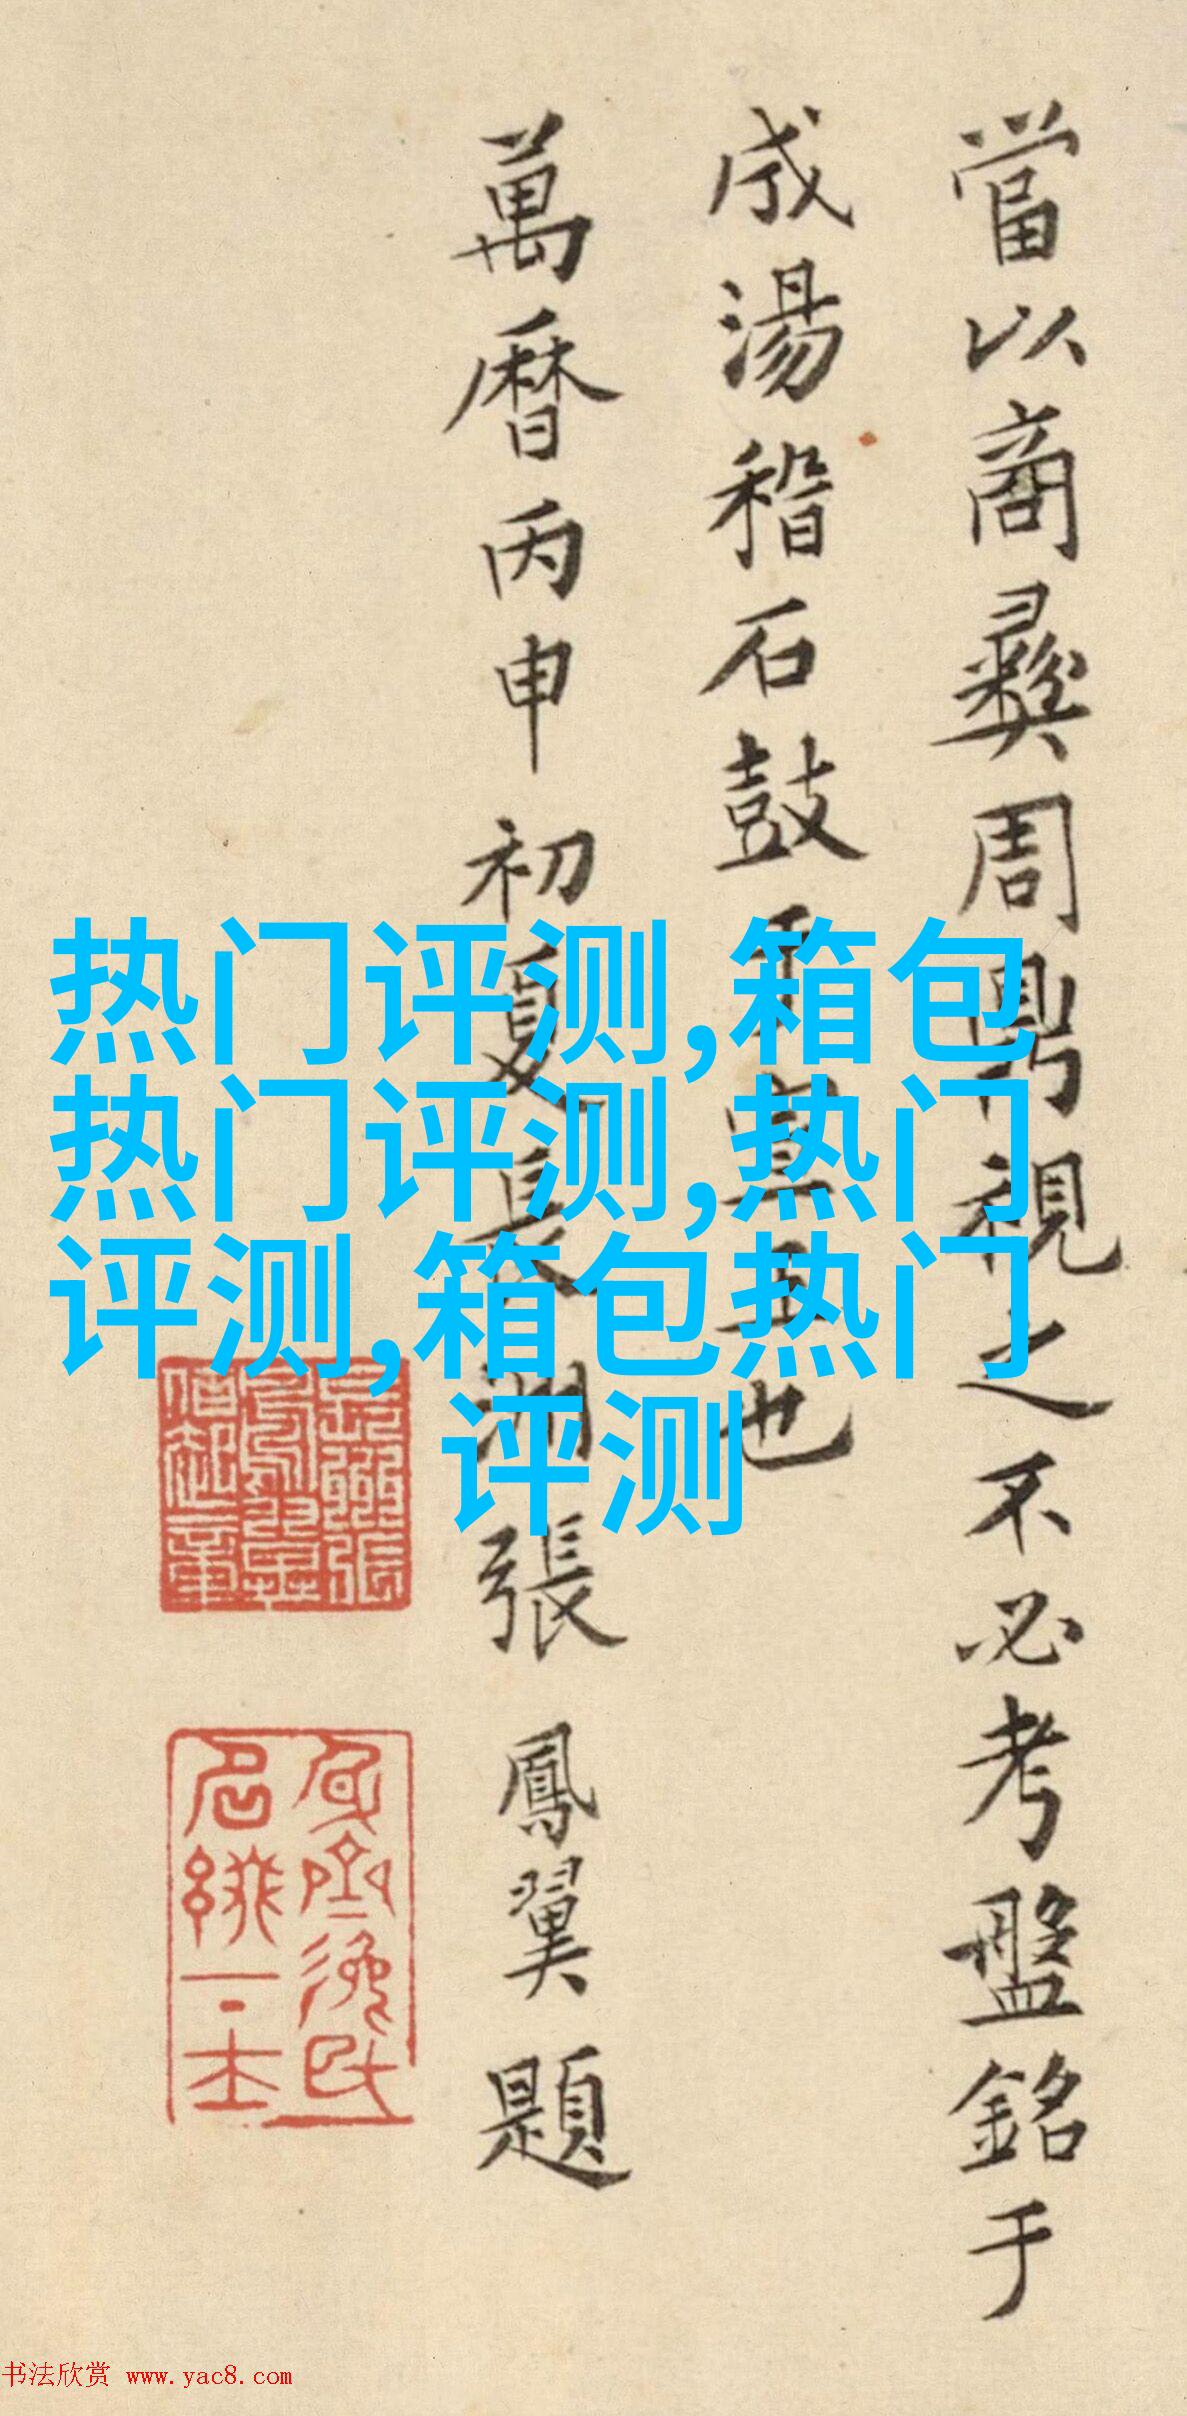 當以商彝周鼎視之不必考盤銘于
成湯稽石鼓于宣王也
萬曆丙申初夏長洲張鳳翼題
热门评测,箱包
热门评测,热门
评测,箱包热门
评测
书法欣赏 www.yac8.com